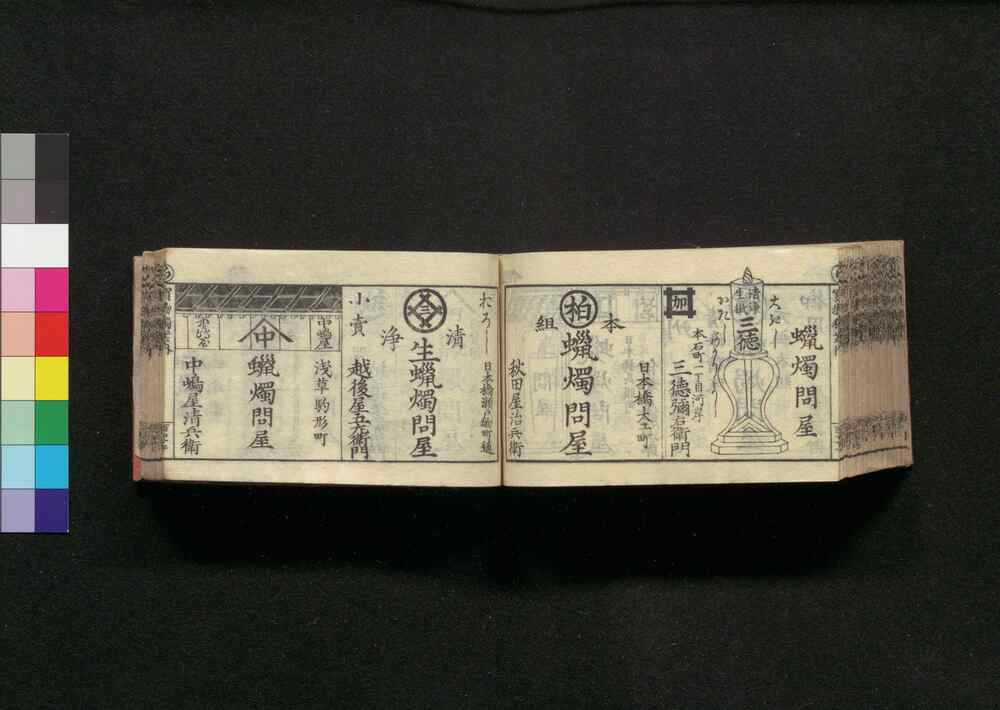 蠟燭問屋
清浄
生掛
三德
本石町一丁目河岸
加
三德彌右衛門
日本橋大工町
本
柏
蠟燭問屋
組
秋田屋治兵衛
おろし
清
生蠟燭問屋
浄
小賣
越後屋五左衛門
中嶋屋
浅草駒形町
中
蠟燭問屋
中嶋屋清兵衛